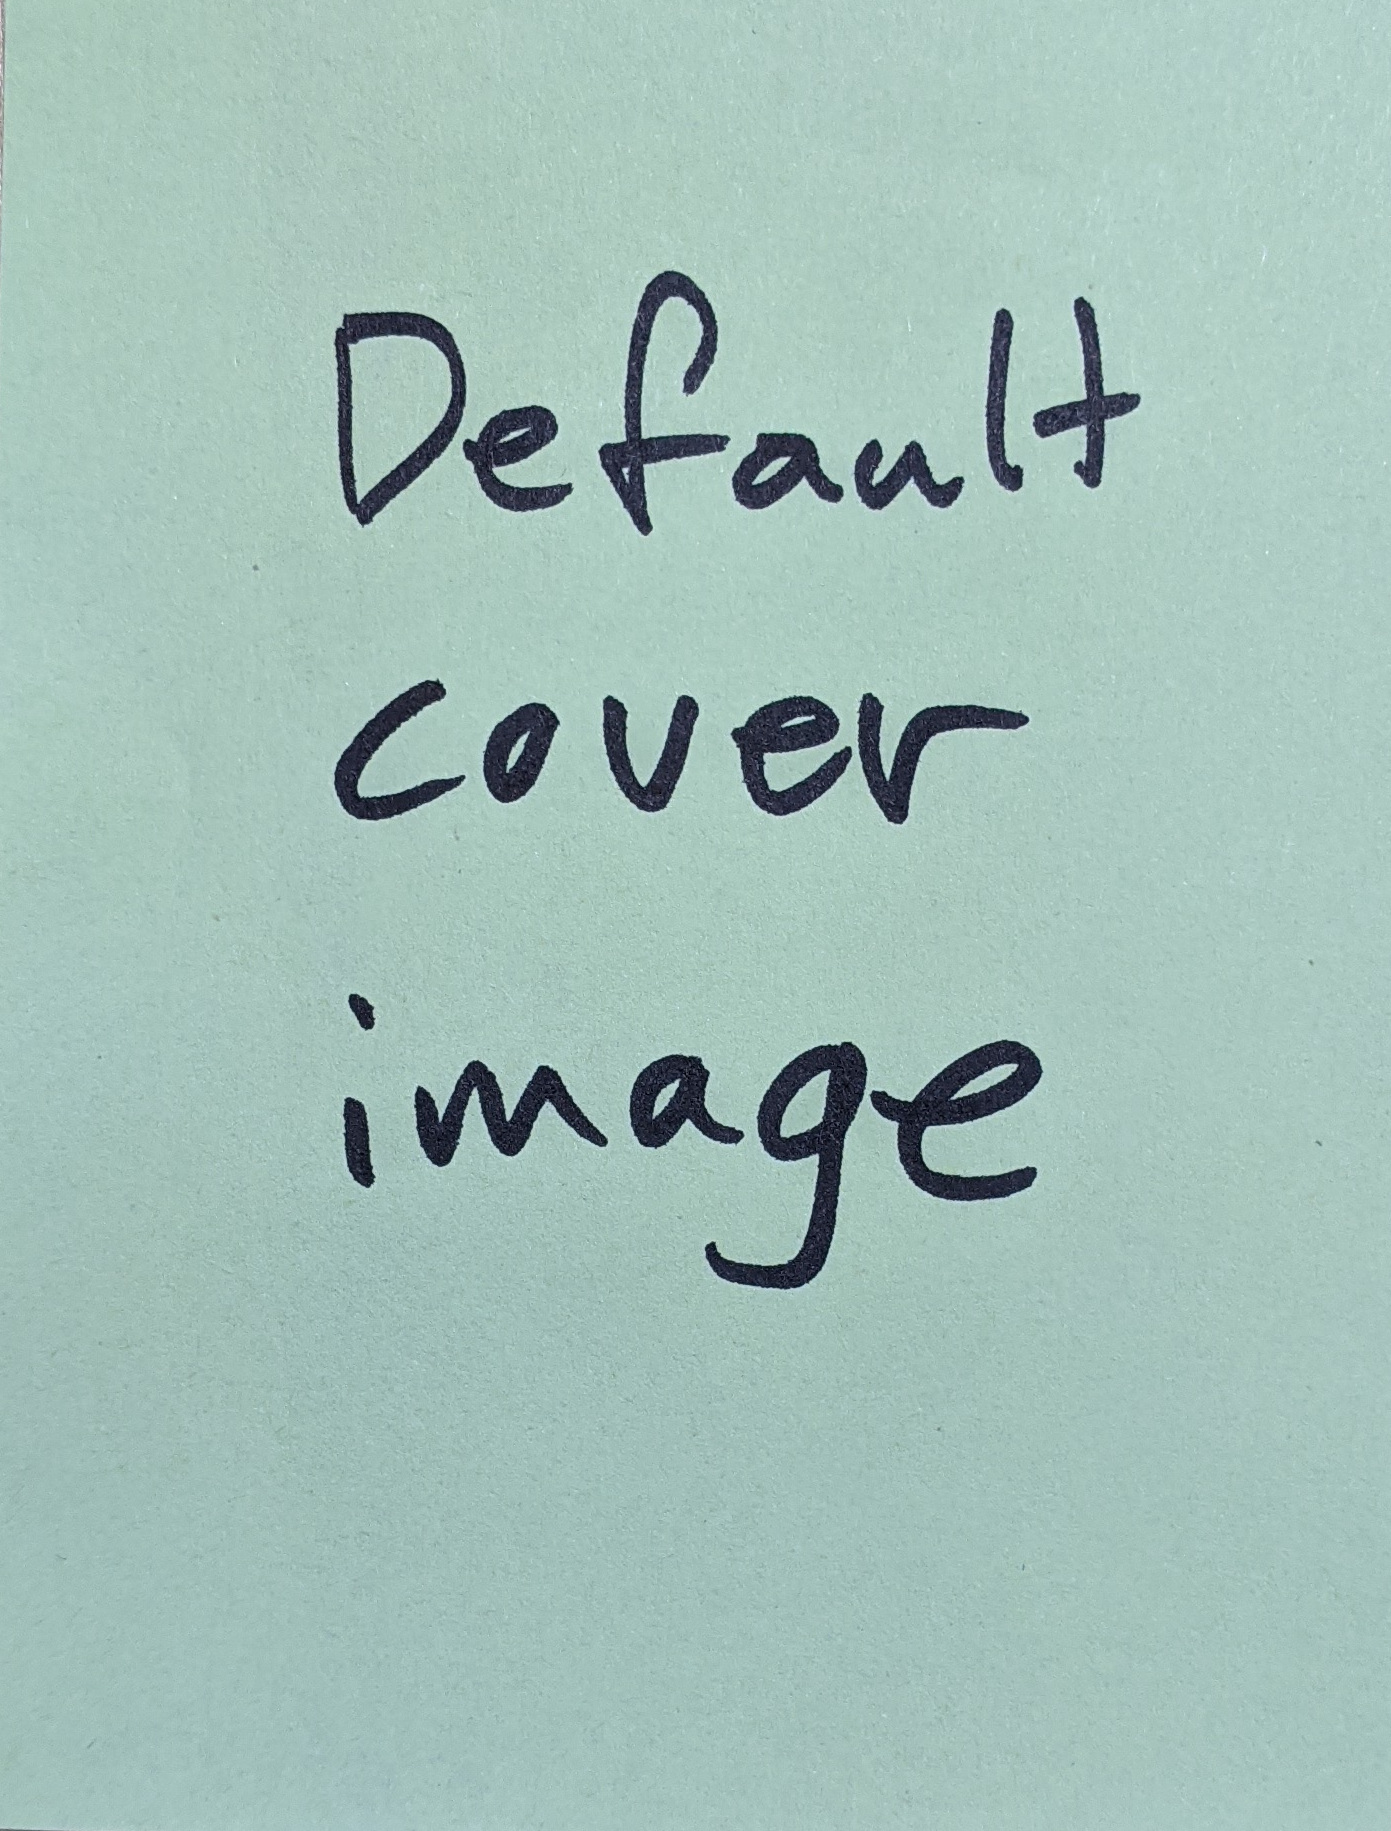 Default
cover
image